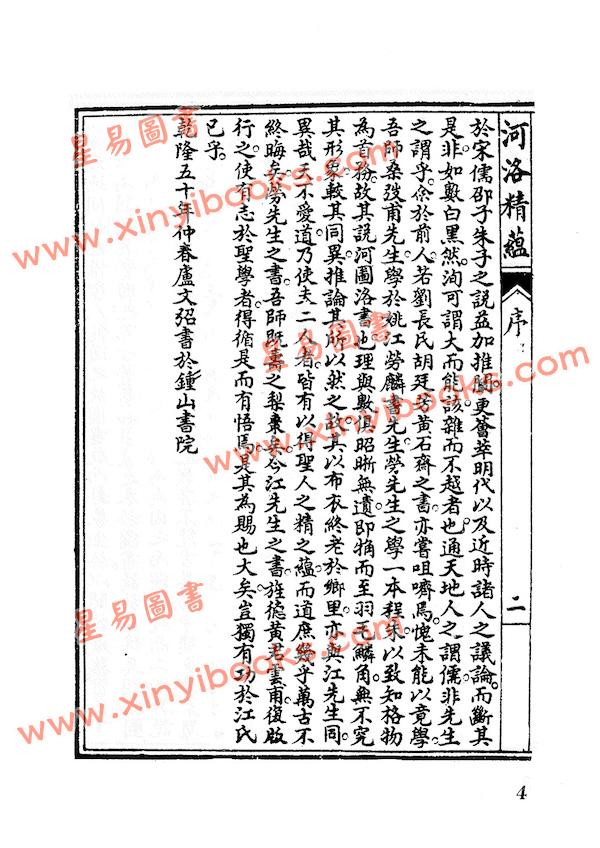 河洛精蘊
序
二
於宋儒邵子朱子之說益加推闡更薈萃明代以及近時諸人之議論而斷其
是非如數白黑然洵可謂大而能該雜而不越者也通天地人之謂儒非先生
之謂乎余於前人若劉長民胡廷芳黃石齋之書亦嘗咀嚌焉愧未能以竟學
吾師桑弢甫先生學於姚江勞麟書先生勞先生之學一本程朱以致知格物
為首務故其說河圖洛書也理與數俱昭晰無遺即猶而至羽毛鱗角無不究
其形象較其同異推論其所以然之故其以布衣終老於鄉里亦與江先生同
異哉天不愛道乃使夫二人者皆有以得聖人之精之蘊而道庶幾乎萬古不
終晦矣勞先生之書吾師既壽之梨棗矣今江先生之書旌德黃君雲甫復版
行之使有志於聖學者得循是而有悟焉是其為賜也大矣豈獨有功於江氏
已乎
乾隆五十年仲春盧文弨書於鍾山書院
4
星易圖書
www.xinyibooks.com
星易圖書
www.xinyibooks.com
星易圖書
www.xinyibooks.com